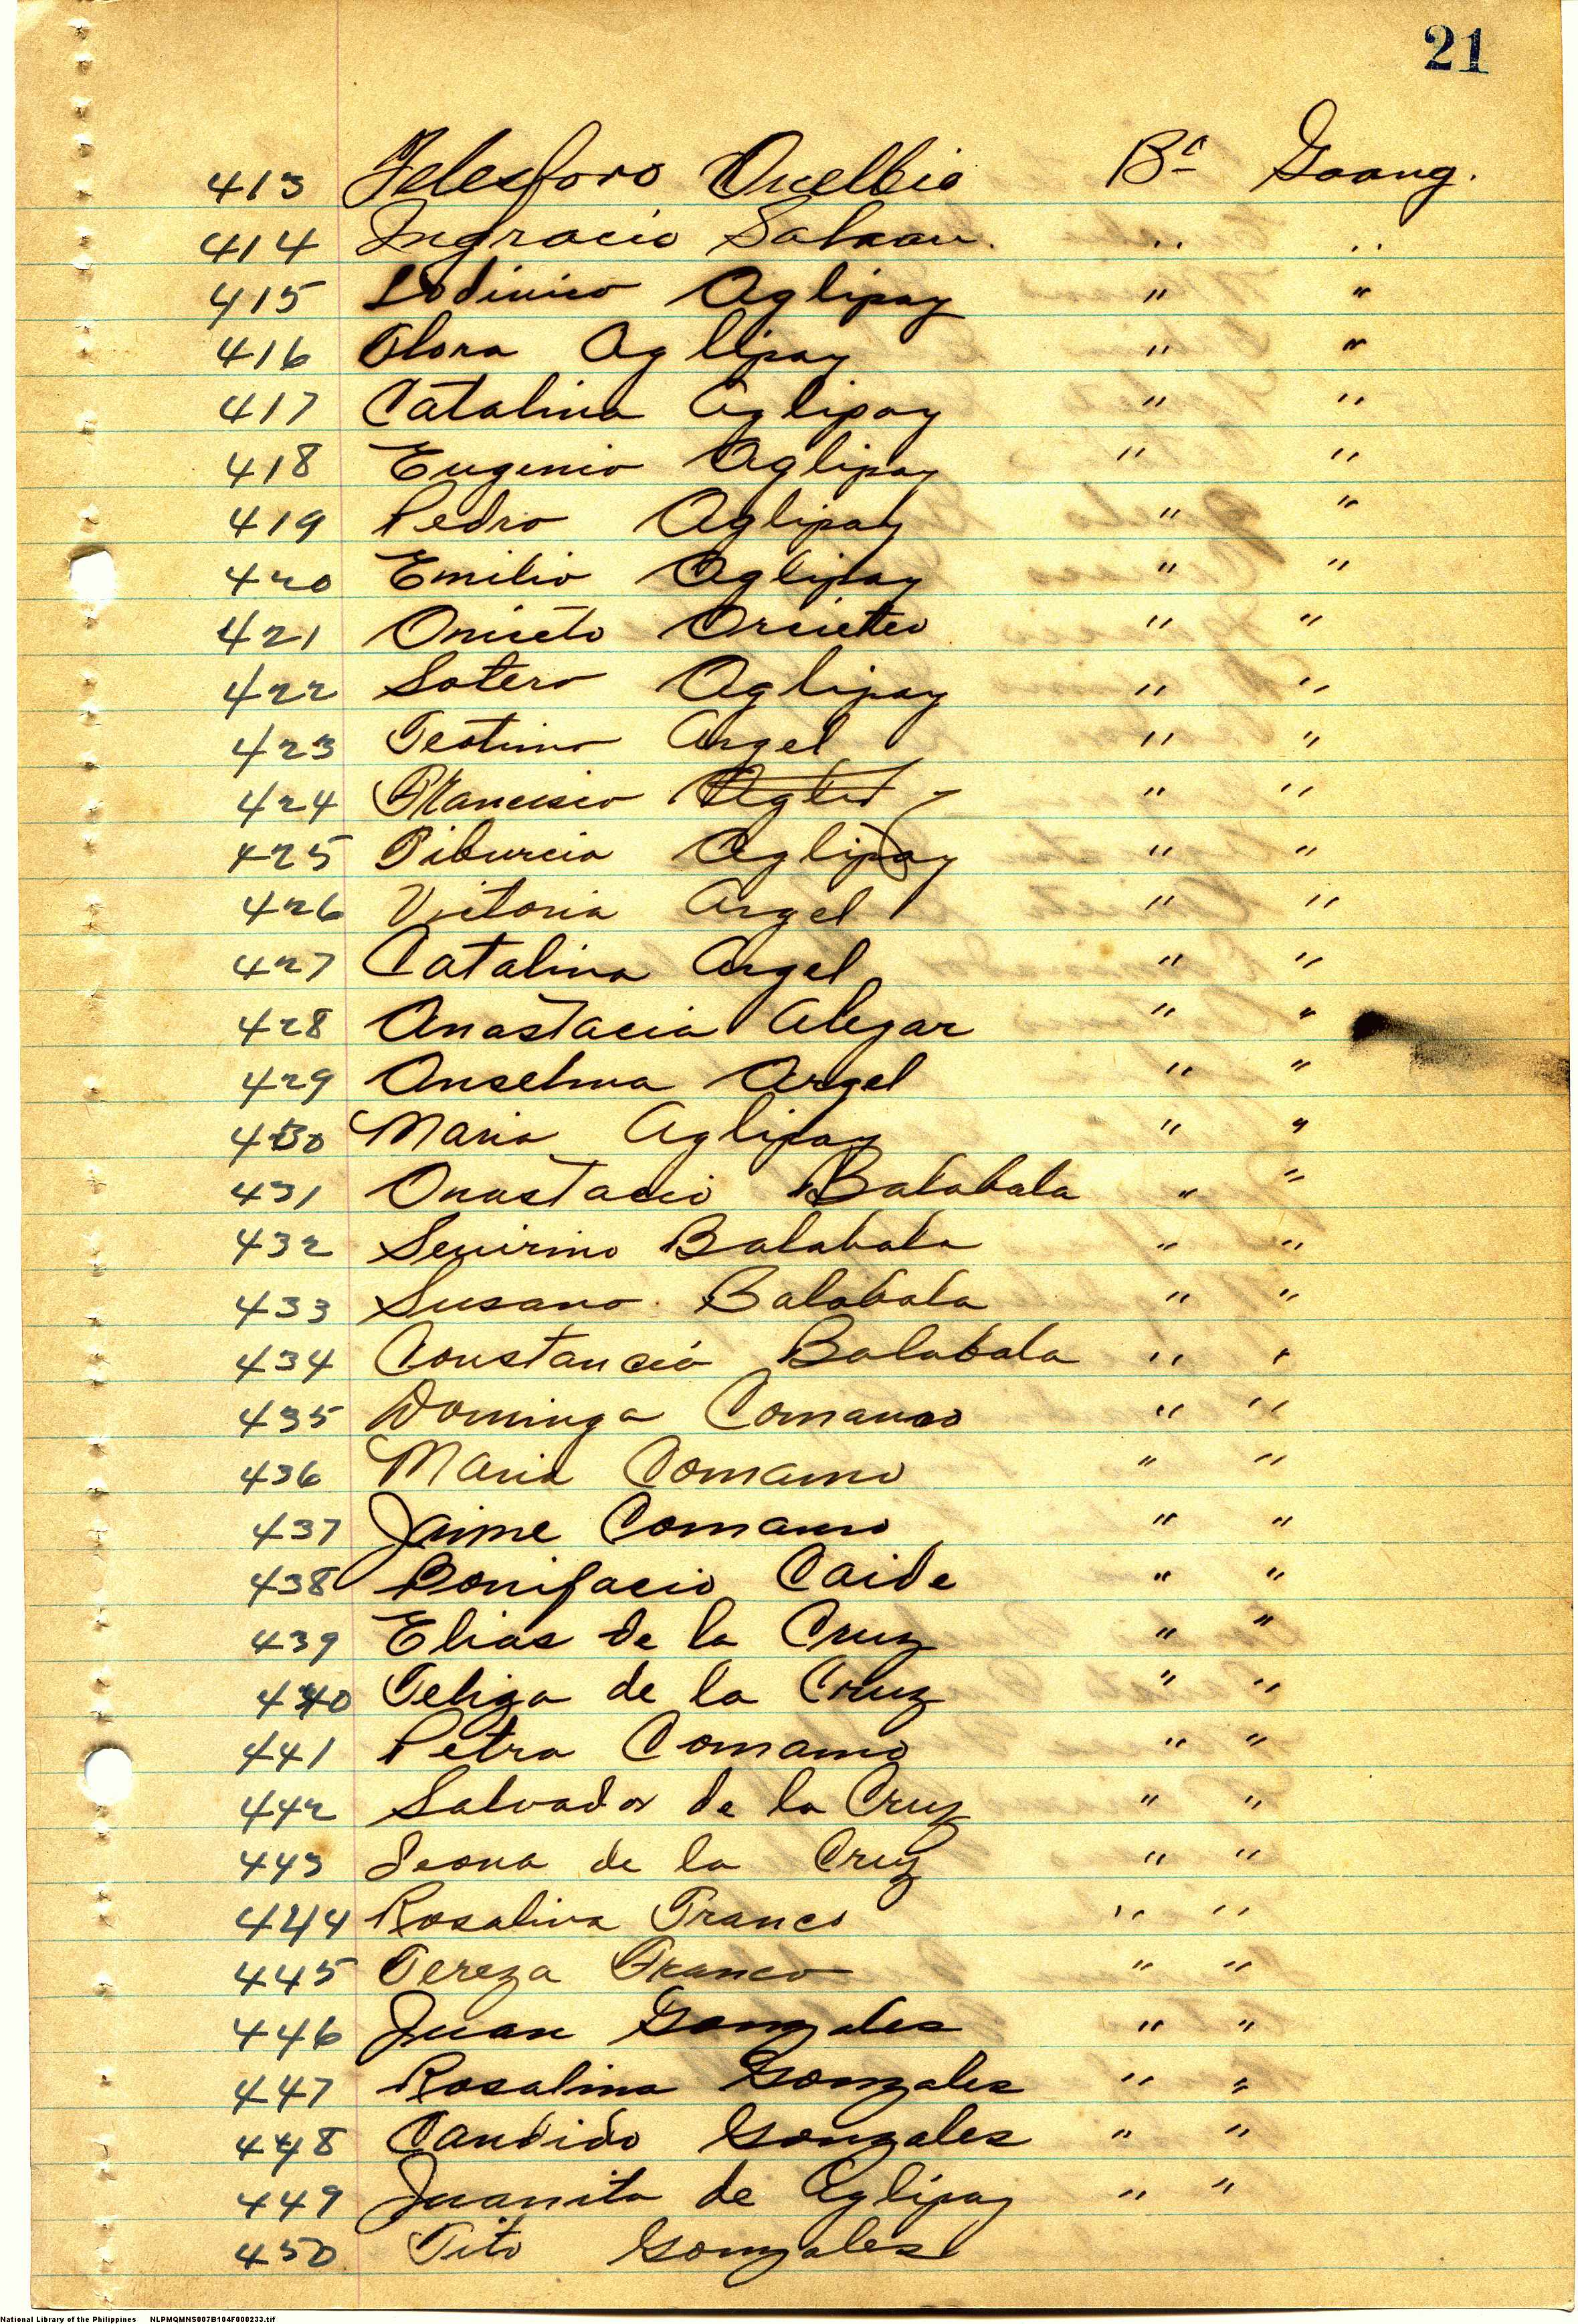 21
413 Telesforo Duelbio Bo Goang.
414 Ingracio Salaau. " "
415 Lodinico Aglipay " "
416 Flora Aglipay " "
417 Catalina Aglipay " "
418 Eugenio Aglipay " "
419 Pedro Aglipay " "
420 Emilio Aglipay " "
421 Aniseto " "
422 Sotero Aglipay " "
423 Teotimo Argel " "
424 Francisco " "
425 Tiburcia Aglipay " "
426 Vitoria Argel " "
427 Catalina Argel " "
428 Anastacia Alegar " "
429 Anselma Argel " "
430 Maria Aglipay " "
431 Anastacio Balabala " "
432 Sevirino Balabala " "
433 Susano Balabala " "
434 Constancio Balabala " "
435 Dominga Comamo " "
436 Maria Comamo " "
437 Jaime Comamo " "
438 Bonifacio Caide " "
439 Elias de la Cruz " "
440 Feliza de la Cruz " "
441 Petra Comamo " "
442 Salvador de la Cruz " "
443 Leona de la Cruz " "
444 Rosalina Franco " "
445 Tereza Franco " "
446 Juan Gonzales " "
447 Rosalina Gonzales " "
448 Candido Gonzales " "
449 Juanita de Aglipay " "
450 Tito Gonzales
National Library of the Philippines NLPMQMNS007B104F000233.tif